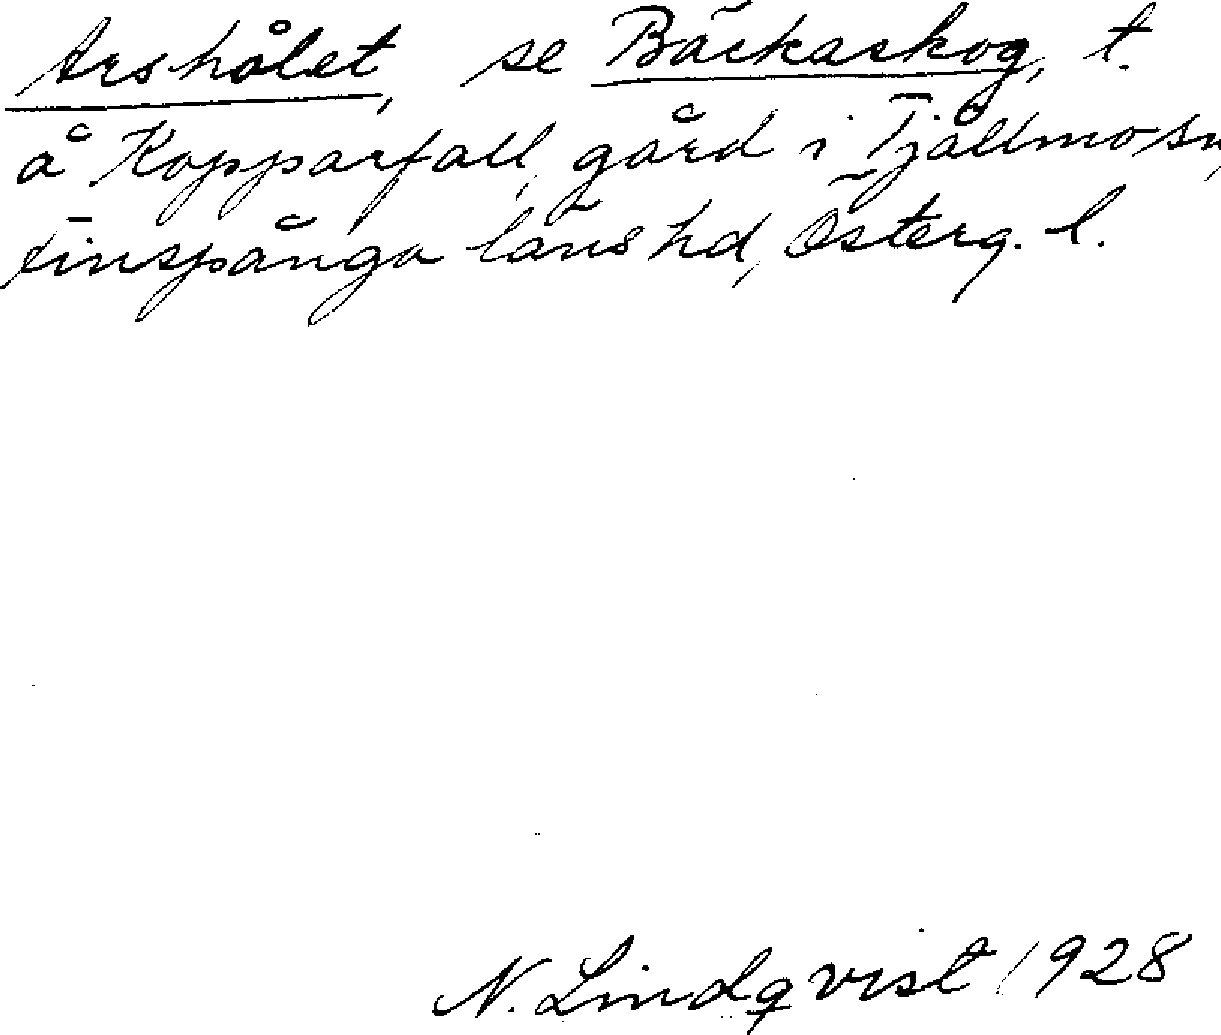 Arshålet, se Bäckaskog, t.
å Kopparfall, gård i Tjällmo sn,
Finspånga läns hd, Österg. l.
N. Lindqvist 1928